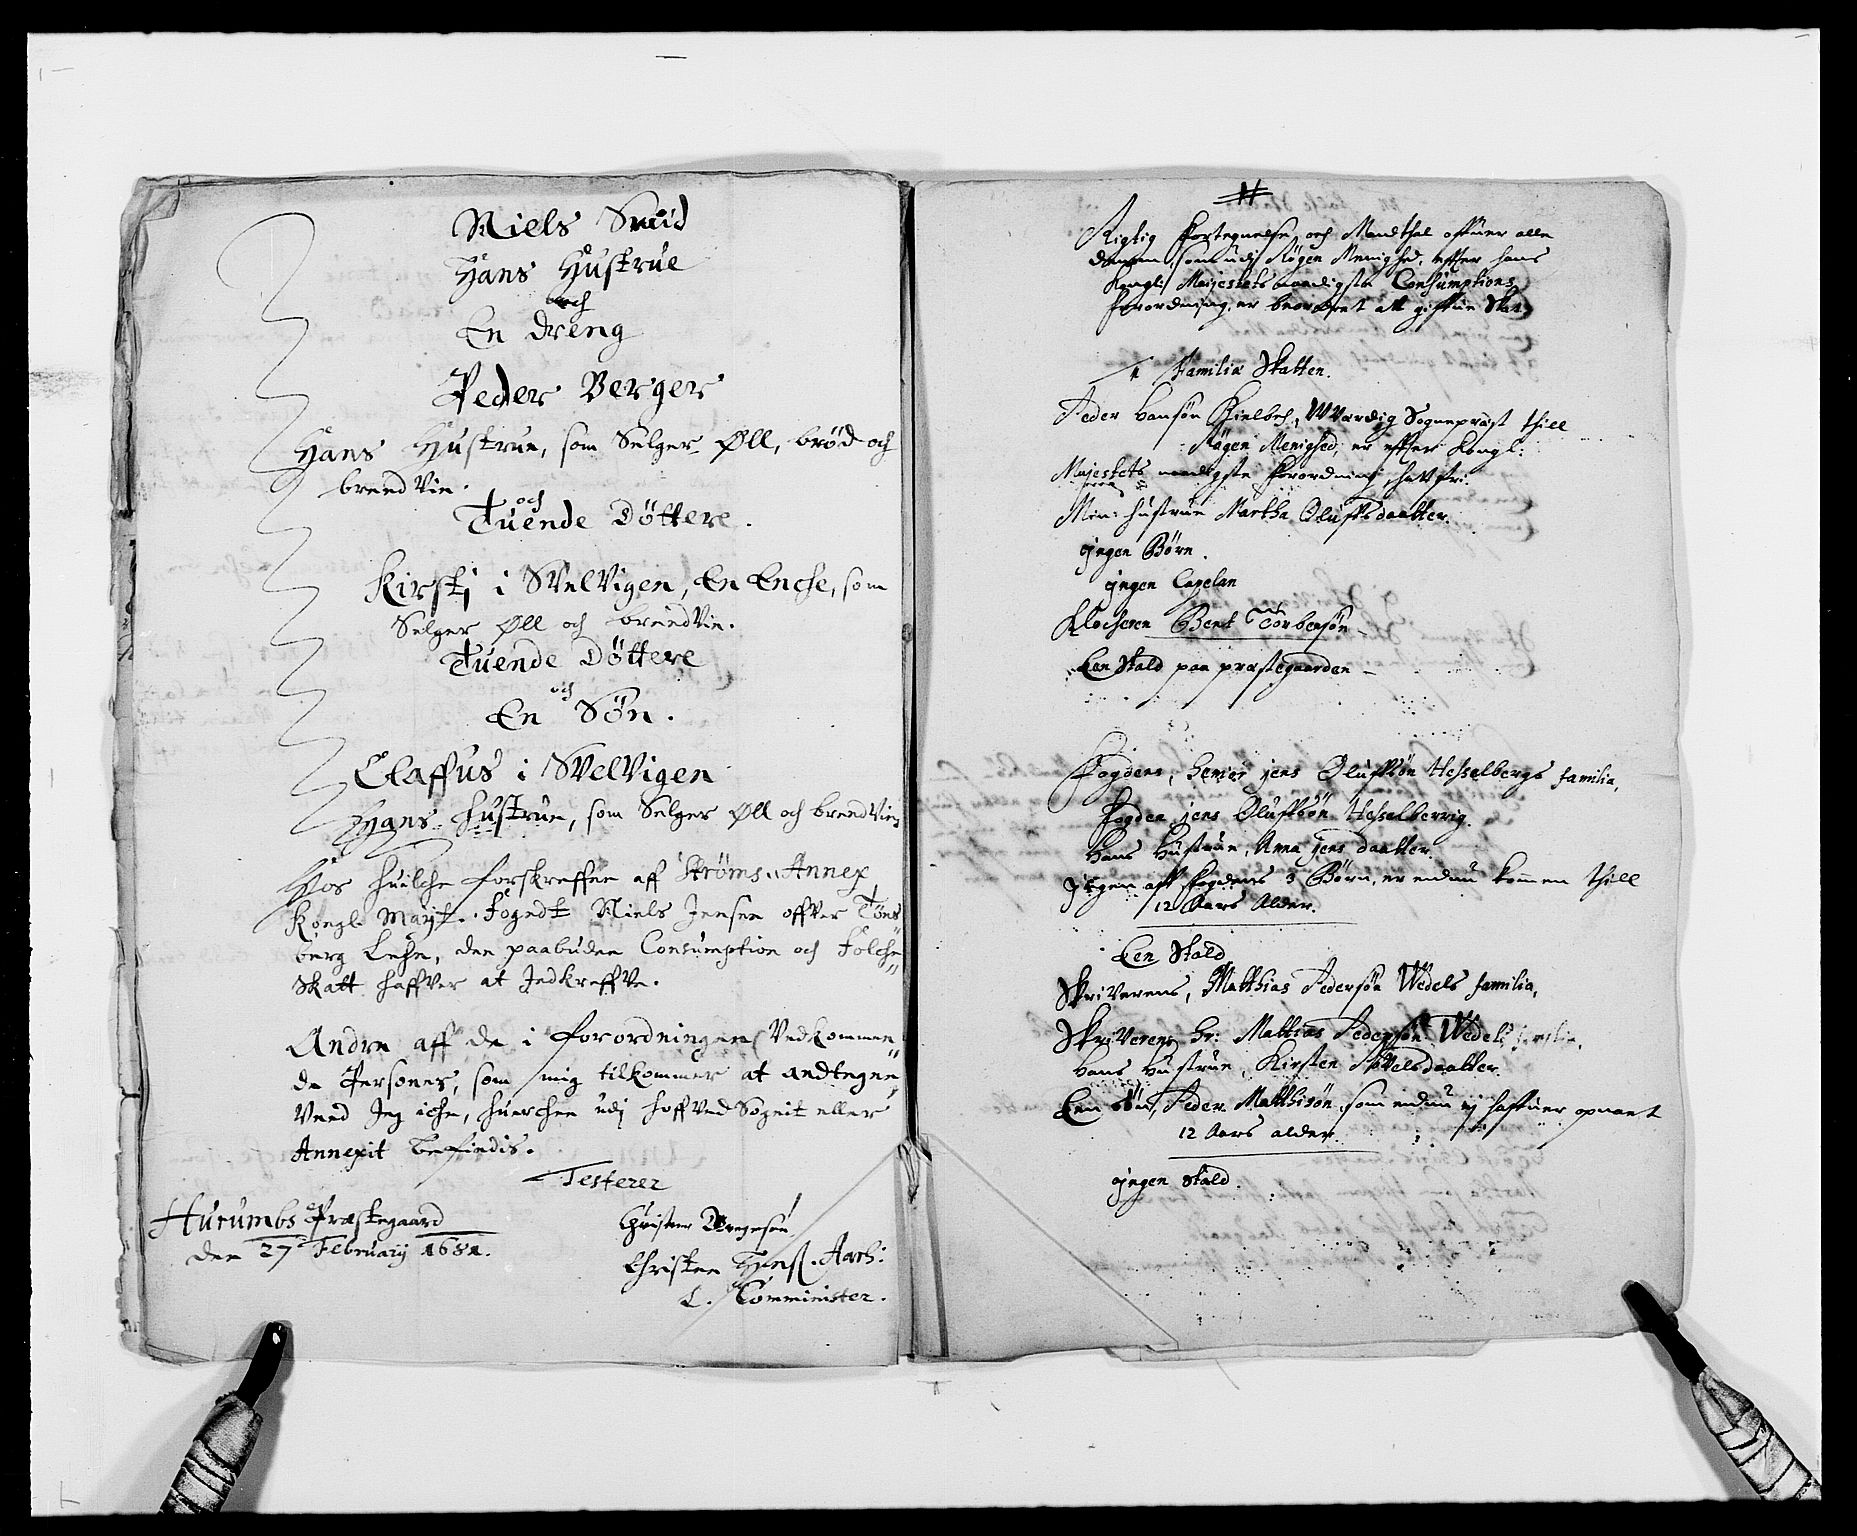 Niels Smid
Hans Hustrue
och
En dreng
Peder Berger
Hans Hustrue, som Selger Øll, brød och
brendVin.
och
Tuende Døttere.
Kirstj i SVelVigen, En Enche, som
Selger Øll och brendVin.
Tuende Døttere
och
En Søn.
Elaffus i SVelVigen
Hans Hustrue, som Selger Øll och brendVin
Hos huilche forskreffne aff Strøms Annex
Kongl. Mayt. Fogedt Niels Jensen offver Tøns
berg Lehn, den paabuden Consumption och Folche
Skatt haffver at Indkreffve.
Andre aff de i forordningen Vedkommen
de Persones, som mig tilkommer at andtegne,
Veed Jeg iche, huerchen udj hoffVed Sognit eller
Annexit befindis.
Testerer
Hurumbs Præstegaard
den 27 February 1681.
Christen
Christen Arctz:
L. Comminister.
Rigtig Fortegnelse och Mandthal offuer alle
dennem, som udj Røgen Menighed, effter hans
Kongl: Majestets naadigste Consumptions
forordning, er beordret att giffue Skat
1 Familie Skatten.
Peder Hansøn Kielbech, WVærdig Sognepræst thill
Røgen Menighed, er effter Kongl:
Majestets naadigste forordning, skatfri.
Min hustrue Martha Oluffsdaatter.
jngen Børn.
jngen Capelan
Klocheren Bent Torbensøn
Een Stald paa præstegaarden
Fogdens, Sr. jens Oluffsøn Hesselbergs familia,
Fogden jens Oluffsøn Hesselberrig.
Hans Hustrue, Anna jens daatter.
jngen aff Fogdens 3 Børn, er endnu kommen thill
12 Aars Alder.
Een Stald
SkriVerens, Matthias Pedersøn Wedels familia,
SkriVeren Sr: Mattias Pedersøn Wedel
Hans Hustrue, Kirsten daatter.
Een Søn, Peder Matthisøn, som endnu ej haffuer opnaet
12 Aars alder.
jngen Stald.